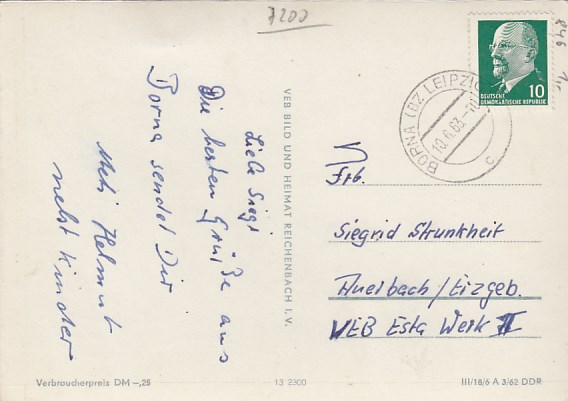 7200
846
Liebe Siegi
Die besten Grüße aus
Borna sendet Dir
Helmut
nebst Kinder
VEB BILD UND HEIMAT REICHENBACH I. V.
DEUTSCHE
DEMOKRATISCHE REPUBLIK
10
BORNA (BZ LEIPZIG)
10.6.63.
c
Frl.
Siegrid Strunkheit
Auerbach/Erzgeb.
VEB Esta Werk II
Verbraucherpreis DM -,25
13 2300
III/18/6 A 3/62 DDR